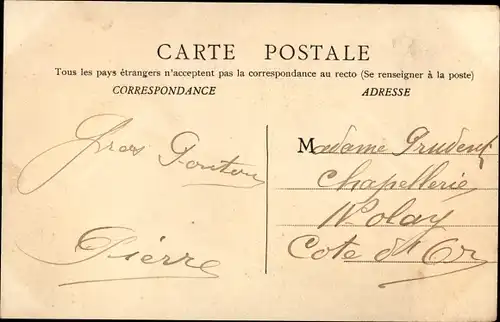 CARTE POSTALE
Tous les pays étrangers n'acceptent pas la correspondance au recto (Se renseigner à la poste)
CORRESPONDANCE
ADRESSE
Gros
Pierre
Madame Prudent
Chapellerie
Nolay
Cote d'Or